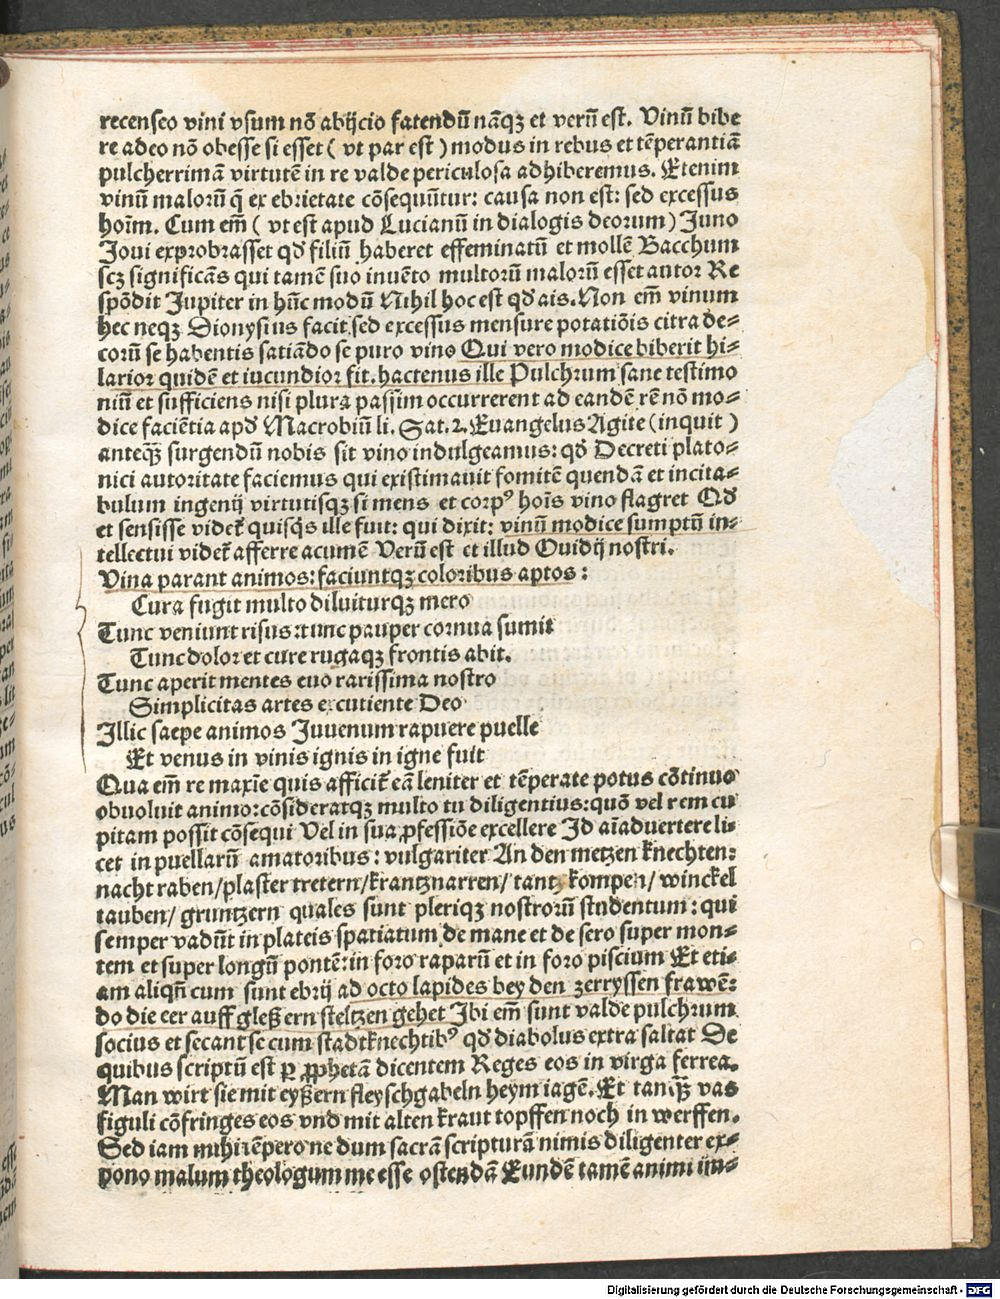 recenseo vini vsum nõ abijcio fatendũ nãqꝫ et verũ est. Vinũ bibe
re adeo nõ obesse si esset ( vt par est ) modus in rebus et tẽperantiã
pulcherrimã virtutẽ in re valde periculosa adhiberemus. Etenim
vinũ malorũ q̃ ex ebrietate cõsequũtur: causa non est: sed excessus
hoĩm. Cum em̃ ( vt est apud Lucianũ in dialogis deorum ) Juno
Joui exprobrasset qd̃ filiũ haberet effeminatũ et mollẽ Bacchum
scꝫ significãs qui tamẽ suo inuẽto multorũ malorũ esset autor Re
spõdit Jupiter in hũc modũ Nihil hoc est qd̃ ais. Non em̃ vinum
hec neqꝫ Dionysius facit sed excessus mensure potatiõis citra de⸗
corũ se habentis satiãdo se puro vino Qui vero modice biberit hi⸗
larior quidẽ et iucundior fit. hactenus ille Pulchrum sane testimo
niũ et sufficiens nisi plura passim occurrerent ad eandẽ rẽ nõ mo⸗
dice faciẽtia apd̃ Macrobiũ li. Sat. 2. Euangelus Agite (inquit )
anteqꝫ̃ surgendũ nobis sit vino indulgeamus: qd̃ Decreti plato⸗
nici autoritate faciemus qui existimauit fomitẽ quendã et incita⸗
bulum ingenij virtutisqꝫ si mens et corpꝰ hoĩs vino flagret Qd̃
et sensisse videt̃ quisq̃s ille fuit: qui dixit: vinũ modice sumptũ in⸗
tellectui videt̃ afferre acumẽ Verũ est et illud Ouidij nostri.
Vina parant animos: faciuntqꝫ coloribus aptos :
Cura fugit multo diluiturqꝫ mero
Tunc veniunt risus: tunc pauper cornua sumit
Tunc dolor et cure rugaqꝫ frontis abit.
Tunc aperit mentes euo rarissima nostro
Simplicitas artes excutiente Deo
Illic saepe animos Juuenum rapuere puelle
Et venus in vinis ignis in igne fuit
Qua em̃ re maxĩe quis afficit̃ eã leniter et tẽperate potus cõtinuo
obuoluit animo: cõsideratqꝫ multo tũ diligentius: quõ vel rem cu
pitam possit cõsequi Vel in sua ꝓfessiõe excellere Id aĩaduertere li⸗
cet in puellarũ amatoribus: vulgariter An den metzen knechten:
nacht raben/plaster tretern/krantznarren/ tantz kompen/ winckel
tauben/ gruntzern quales sunt pleriqꝫ nostrorũ studentum: qui
semper vadũt in plateis spatiatum de mane et de sero super mon⸗
tem et super longũ pontẽ: in foro raparũ et in foro piscium Et eti⸗
am aliqñ cum sunt ebrij ad octo lapides bey den zerryssen frawẽ:
do die eer auff gleßern steltzen gehet Ibi em̃ sunt valde pulchrum
socius et secant se cum stadtknechtibꝰ qd̃ diabolus extra saltat De
quibus scriptũ est ꝑ ꝓphetã dicentem Reges eos in virga ferrea.
Man wirt sie mit eyßern fleyschgabeln heym iagẽ. Et tanqꝫ̃ vas
figuli cõfringes eos vnd mit alten kraut topffen noch in werffen.
Sed iam mihi tẽpero ne dum sacrã scripturã nimis diligenter ex⸗
pono malum theologum me esse ostendã Eundẽ tamẽ animi im⸗
Digitalisierung gefördert durch die Deutsche Forschungsgemeinschaft - DFG